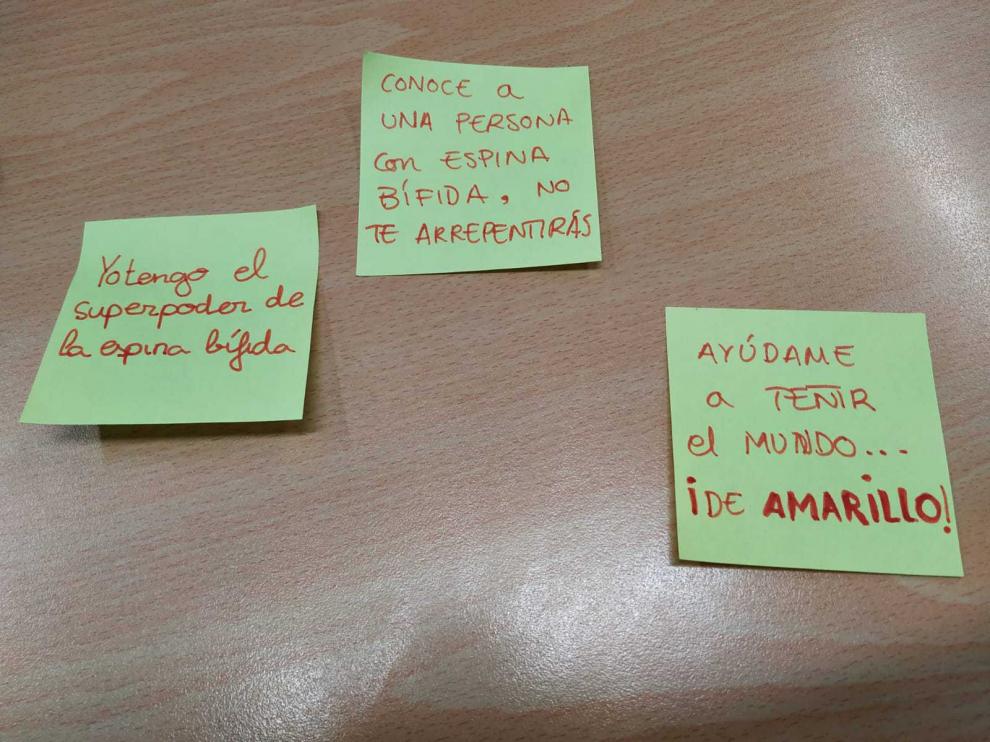 CONOCE a
UNA PERSONA
con ESPINA
BÍFIDA, NO
TE ARREPENTIRÁS
Yo tengo el
superpoder de
la espina bífida
AYÚDAME
a TEÑIR
el MUNDO...
¡DE AMARILLO!